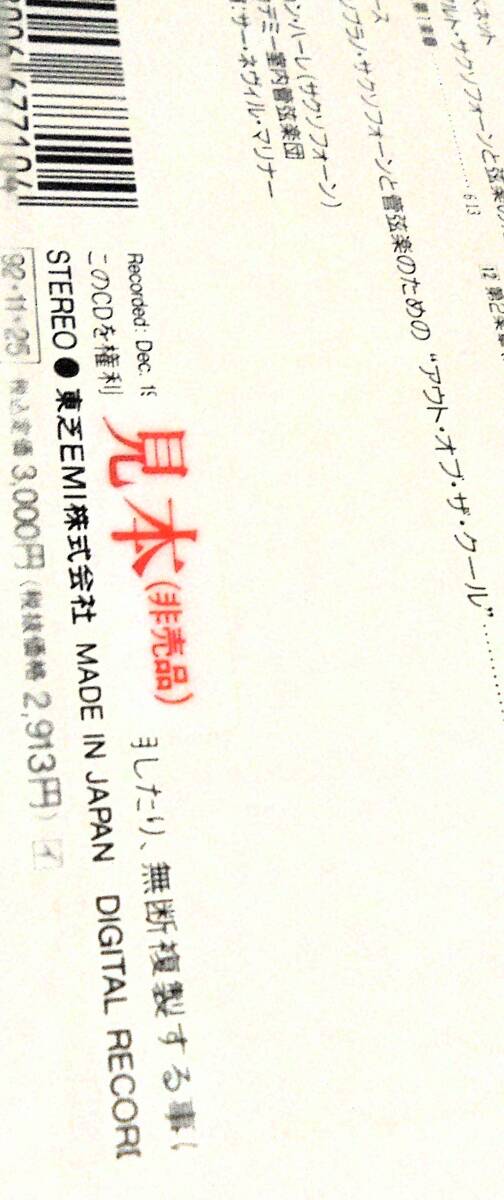 ベネット
ルト・サクソフォーンと弦楽の
第1楽章 ……… 6:13
12 第2楽章
ース
ソプラノ・サクソフォーンと管弦楽のための“アウト・オブ・ザ・クール” ………
ン・ハーレ(サクソフォーン)
デミー室内管弦楽団
サー・ネヴィル・マリナー
Recorded: Dec. 19
このCDを権利
見本(非売品)
したり、無断複製する事
STEREO ● 東芝EMI株式会社 MADE IN JAPAN DIGITAL RECORD
92・11・25 税込定価 3,000円(税抜価格 2,913円) イ